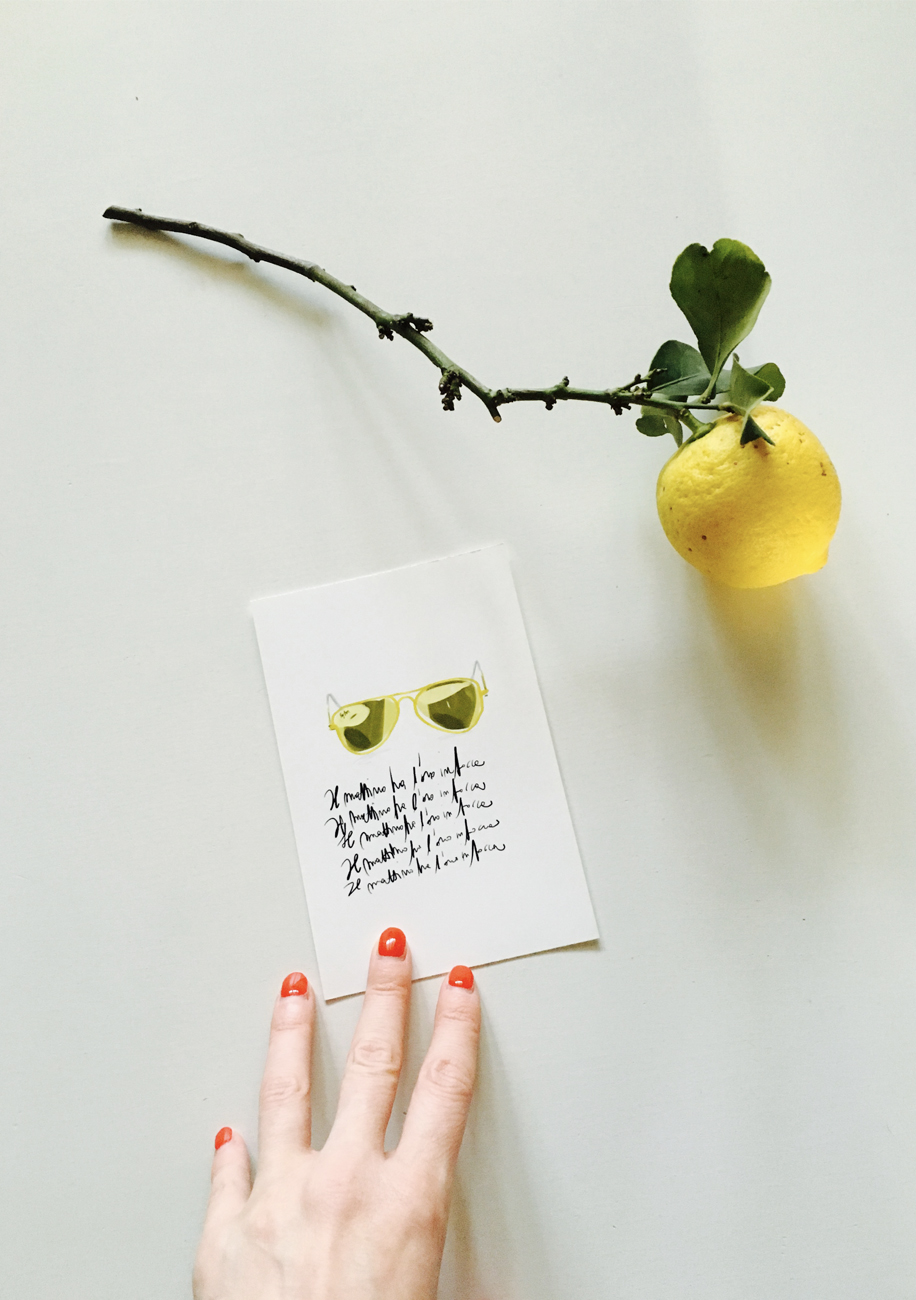 Il mattino ha l'oro in bocca
Il mattino ha l'oro in bocca
Il mattino ha l'oro in bocca
Il mattino ha l'oro in bocca
Il mattino ha l'oro in bocca